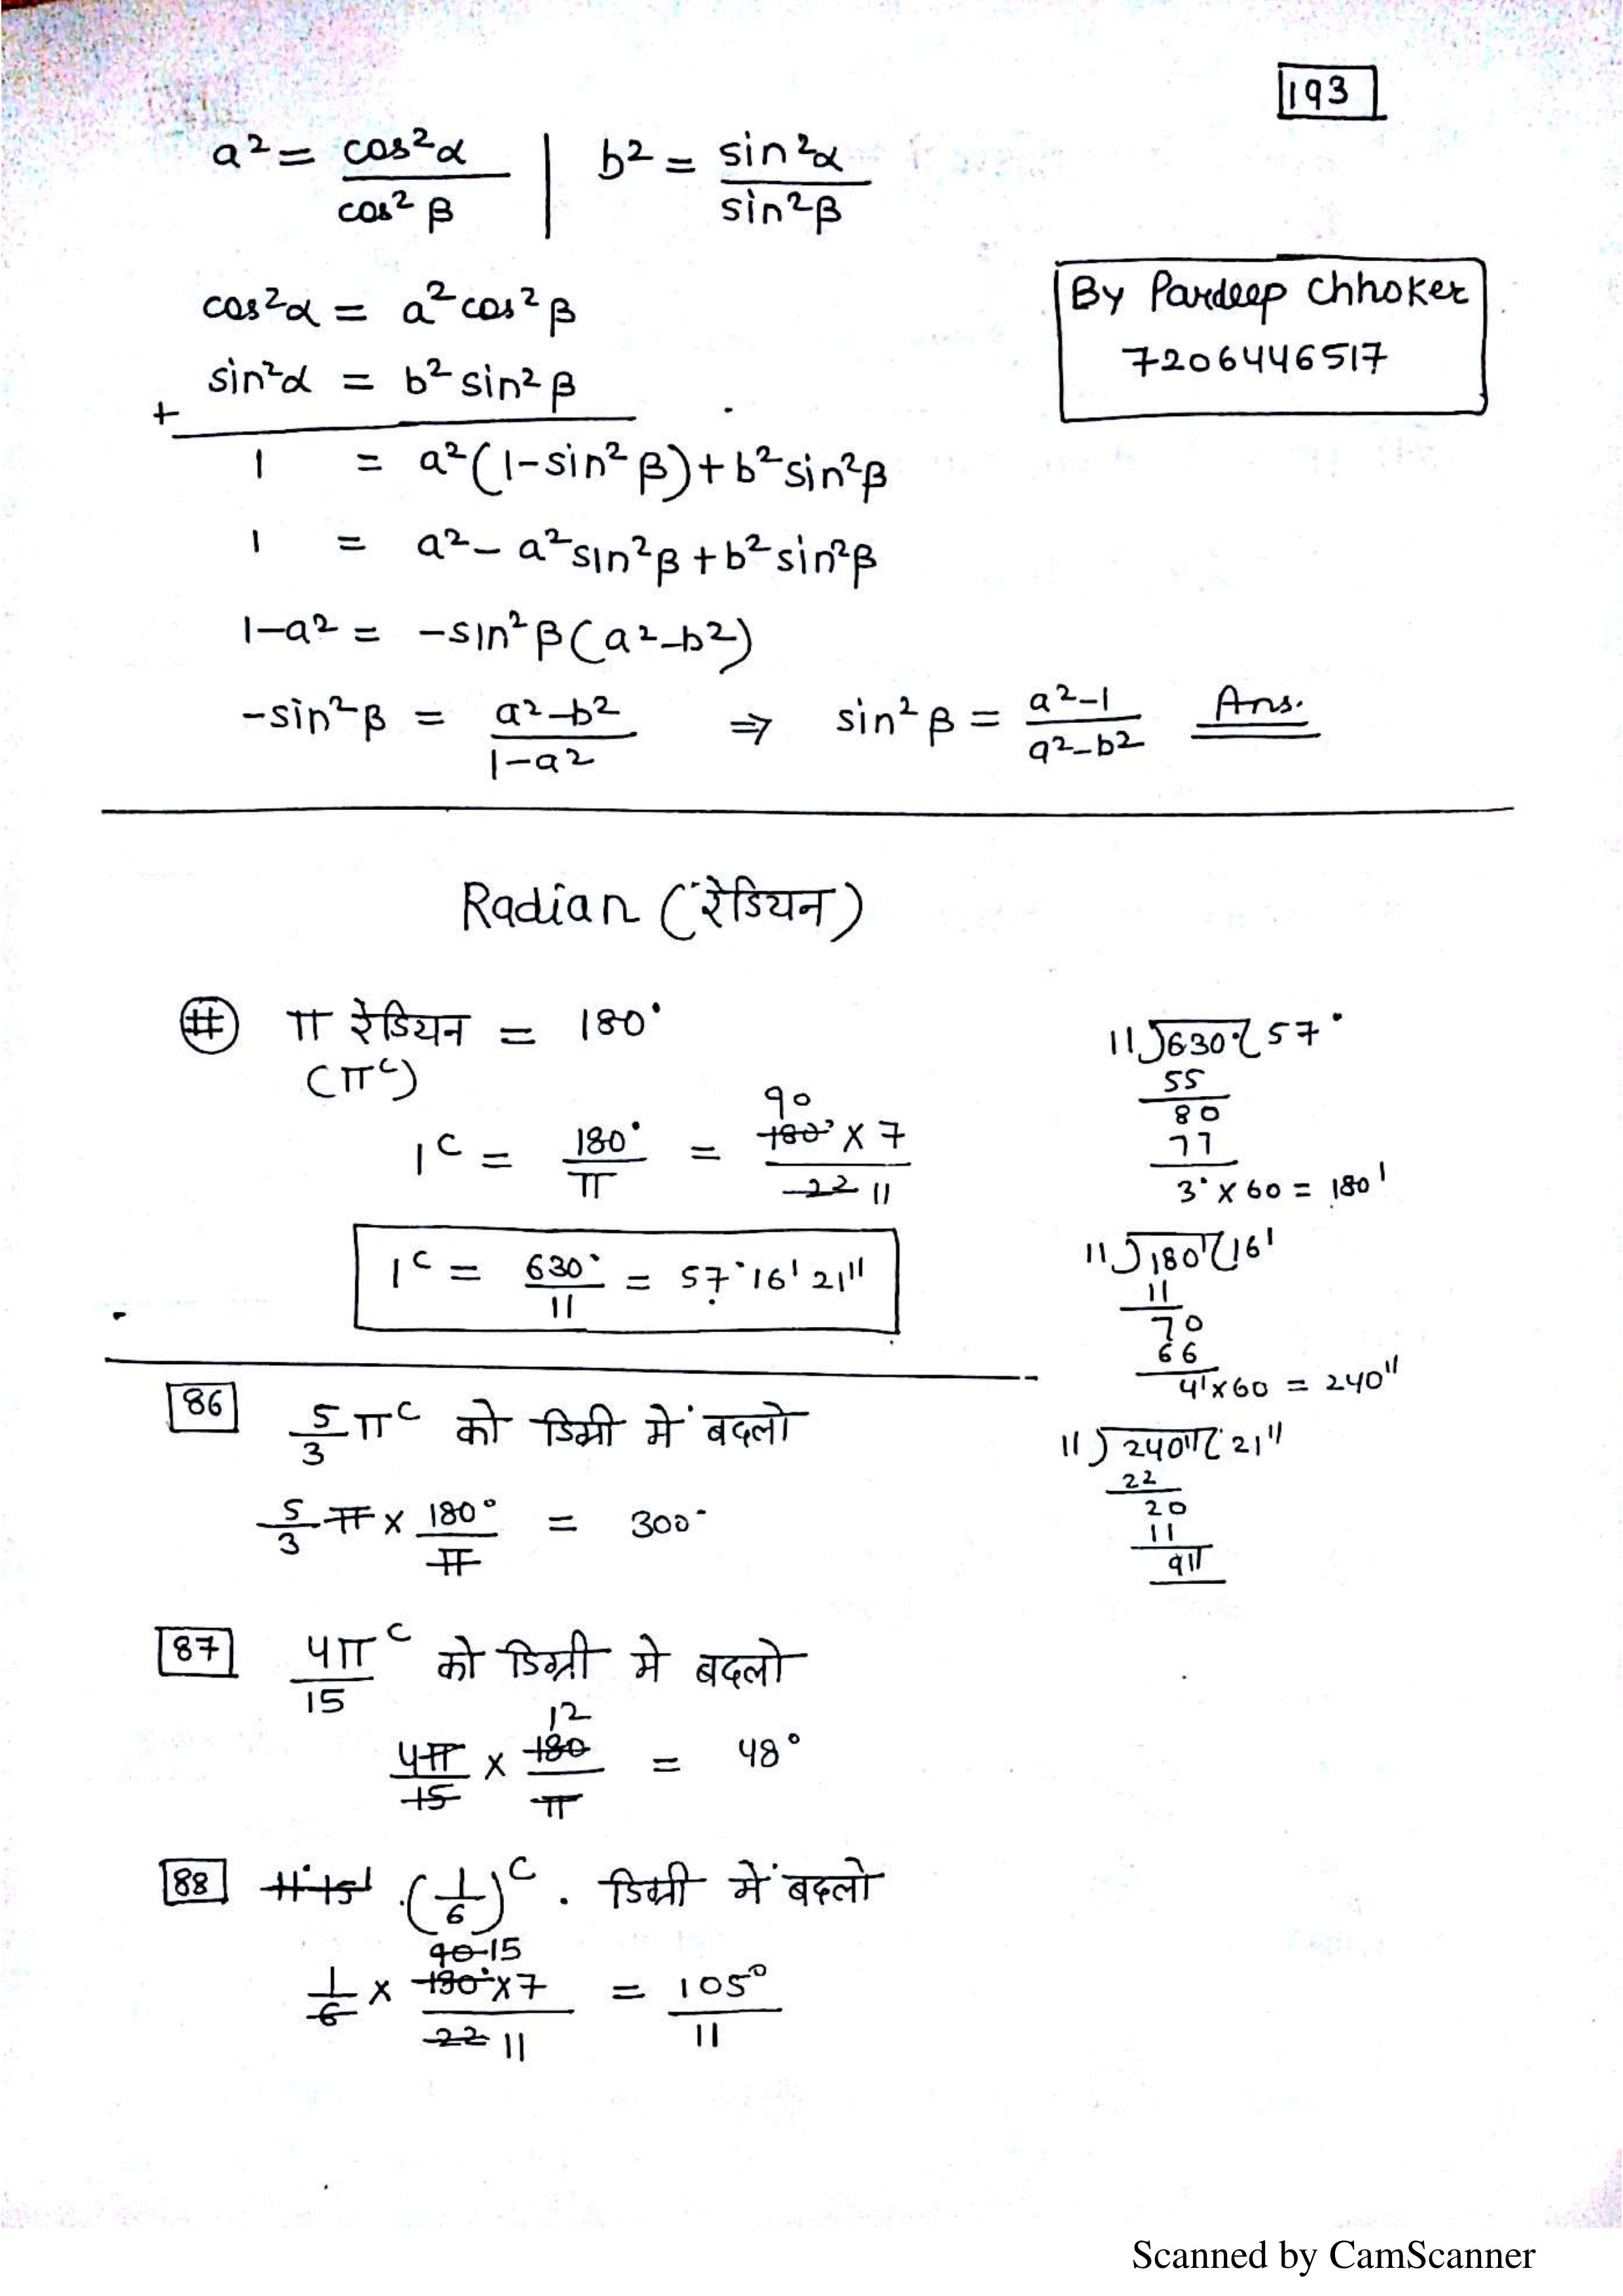 193
a² = cos²α / cos²β | b² = sin²α / sin²β
By Pardeep Chhoker
7206446517
cos²α = a² cos²β
sin²α = b² sin²β
+
1 = a²(1-sin²β)+b²sin²β
1 = a²- a²sin²β+b²sin²β
1-a² = -sin²β(a²-b²)
-sin²β = a²-b² / 1-a² ⇒ sin²β = a²-1 / a²-b² Ans.
Radian (रेडियन)
# π रेडियन = 180°
(πᶜ)
1ᶜ = 180° / π = 180° × 7 / 22
90
11
1ᶜ = 630° / 11 = 57°16'21"
11)630°(57°
55
80
77
3° × 60 = 180'
11)180'(16'
11
70
66
4' × 60 = 240"
11)240"(21"
22
20
11
9"
86 5/3 πᶜ को डिग्री में बदलो
5/3 π × 180° / π = 300°
87 4πᶜ / 15 को डिग्री मे बदलो
12
4π / 15 × 180 / π = 48°
88 11°15' (1/6)ᶜ . डिग्री में बदलो
90 15
1/6 × 180° × 7 / 22 11 = 105° / 11
Scanned by CamScanner